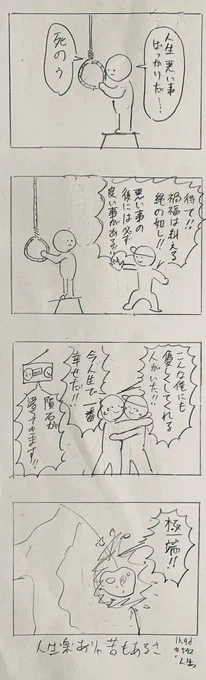 人生悪い事
ばっかりだ…
死のう
待て!!
禍福は糾える
縄の如し!!
悪い事の
後には必ず
良い事がある!!
こんな俺にも
優しくしてくれる
人がいた!!
今人生で一番
幸せだ!!
隕石が
落ちてきます!!
極端!!
人生楽ありゃ苦もあるさ
#592
"人生"